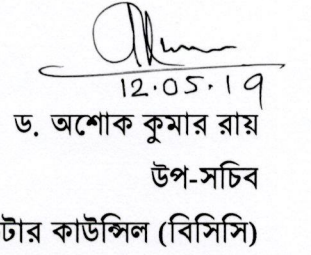 12.05.19
ড. অশোক কুমার রায়
উপ-সচিব
টার কাউন্সিল (বিসিসি)